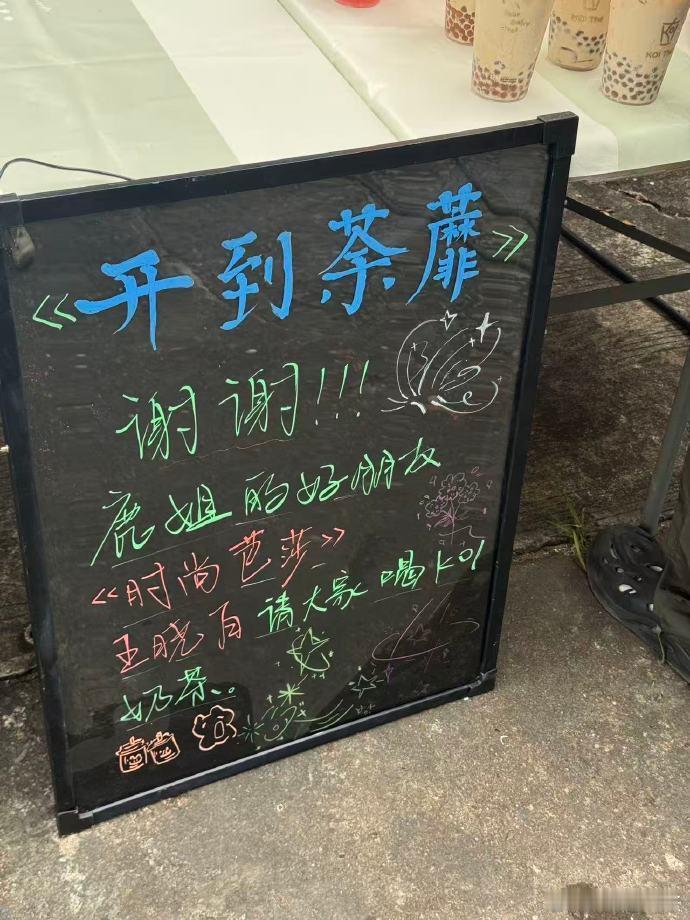 KOI THÉ
KOI THÉ
《开到荼蘼》
谢谢!!!
鹿姐的好朋友
《时尚芭莎》
王晓月请大家喝KOI
奶茶。